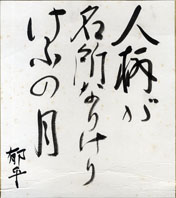 人柄が
名所なりけり
けふの月
郁乎